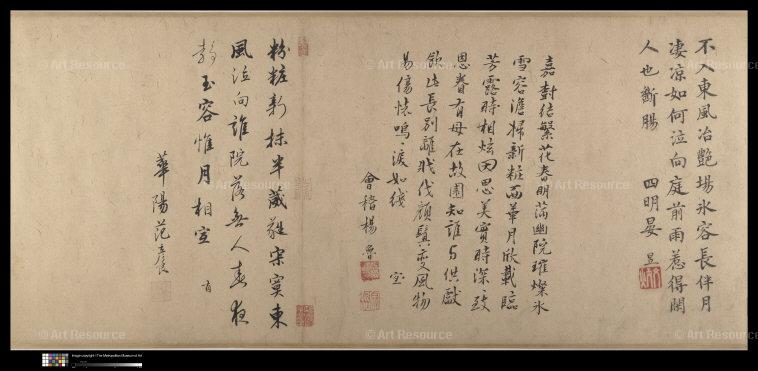 不入東風冶艷場氷容長伴月
凄凉如何泣向庭前雨惹得閑
人也斷腸 四明晏昱
嘉封結繁花春明滿幽院璀燦氷
雪容澹掃新粧面華月欣載臨
芳露時相炫因思美實時深致
恩眷有母在故園知誰与供獻
飲此長別離戕伐顏鬢變風物
易傷懷鳴淚如綫
會稽楊魯 宝
粉粧新抹半藏羞寂寞東
風泣向誰院落無人春夜
靜玉容惟月相宜 有
華陽范
© Art Resource
© Art Resource
© Art Resource
© Art Resource
© Art Resource
© Art Resource
© Art Resource
Image copyright The Metropolitan Museum of Art